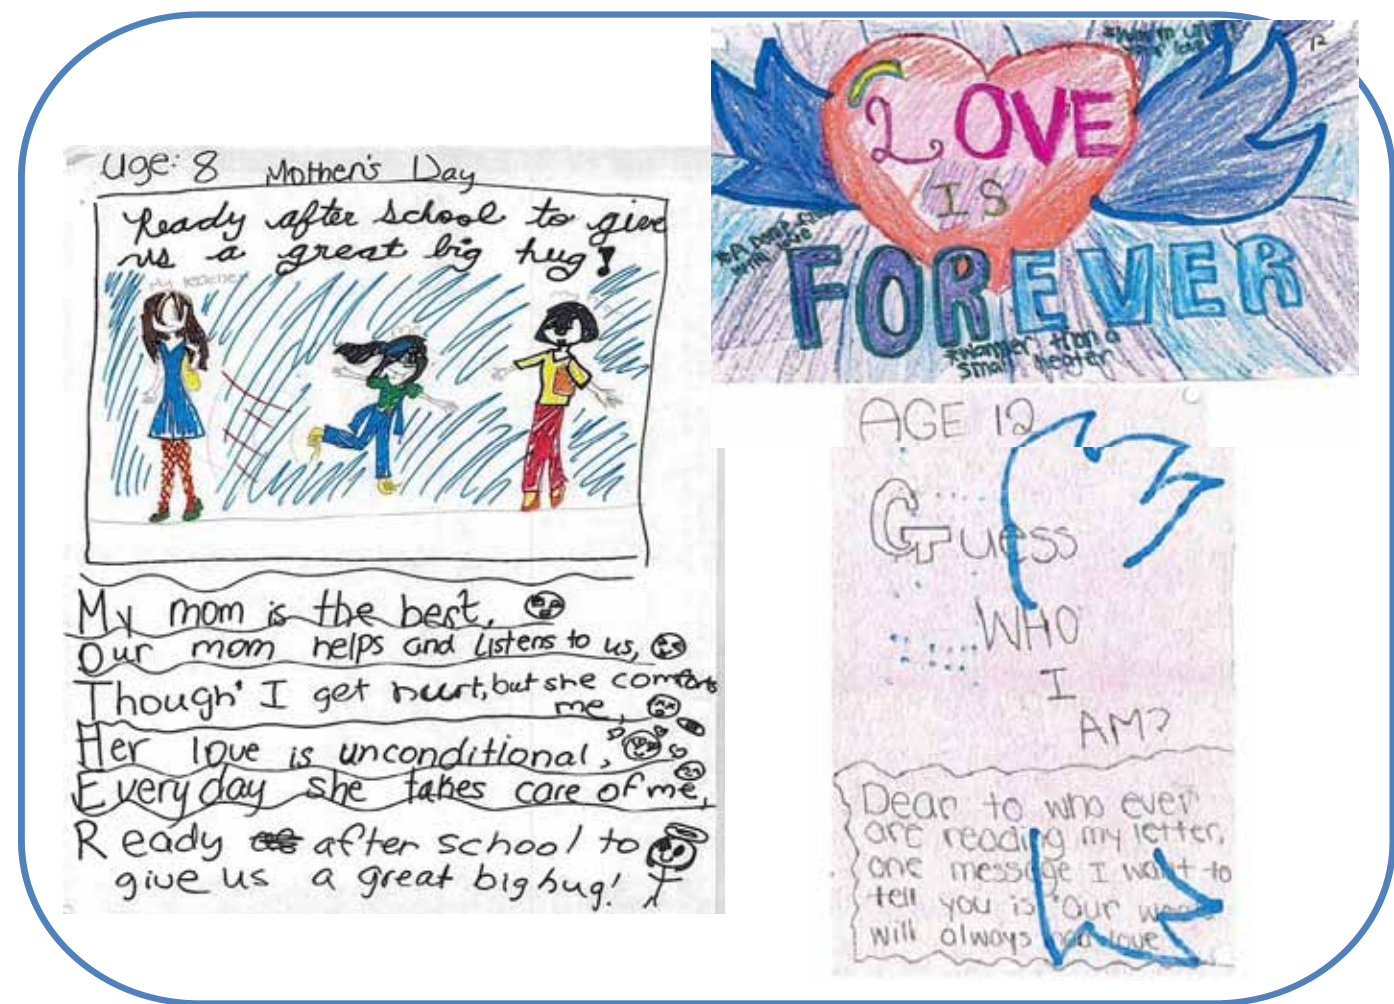 age: 8 Mother's Day
Ready after school to give
us a great big hug!
My teacher
My mom is the best,
Our mom helps and Listens to us,
Though I get hurt, but she comforts
me,
Her love is unconditional,
Everyday she takes care of me,
Ready after school to
give us a great big hug!
12
LOVE
IS
FOREVER
with love
*Warmer than a
small heater
AGE 12
Guess
WHO
I
AM?
Dear to who ever
are reading my letter,
one message I want to
tell you is "Our
will always love